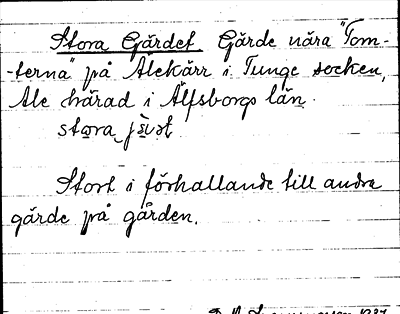 Stora Gärdet Gärde nära "Tom-
-terna" på Alekärr i Tunge socken,
Ale härad i Älfsborgs län.
stora
Stort i förhallande till andra
gärde på gården.